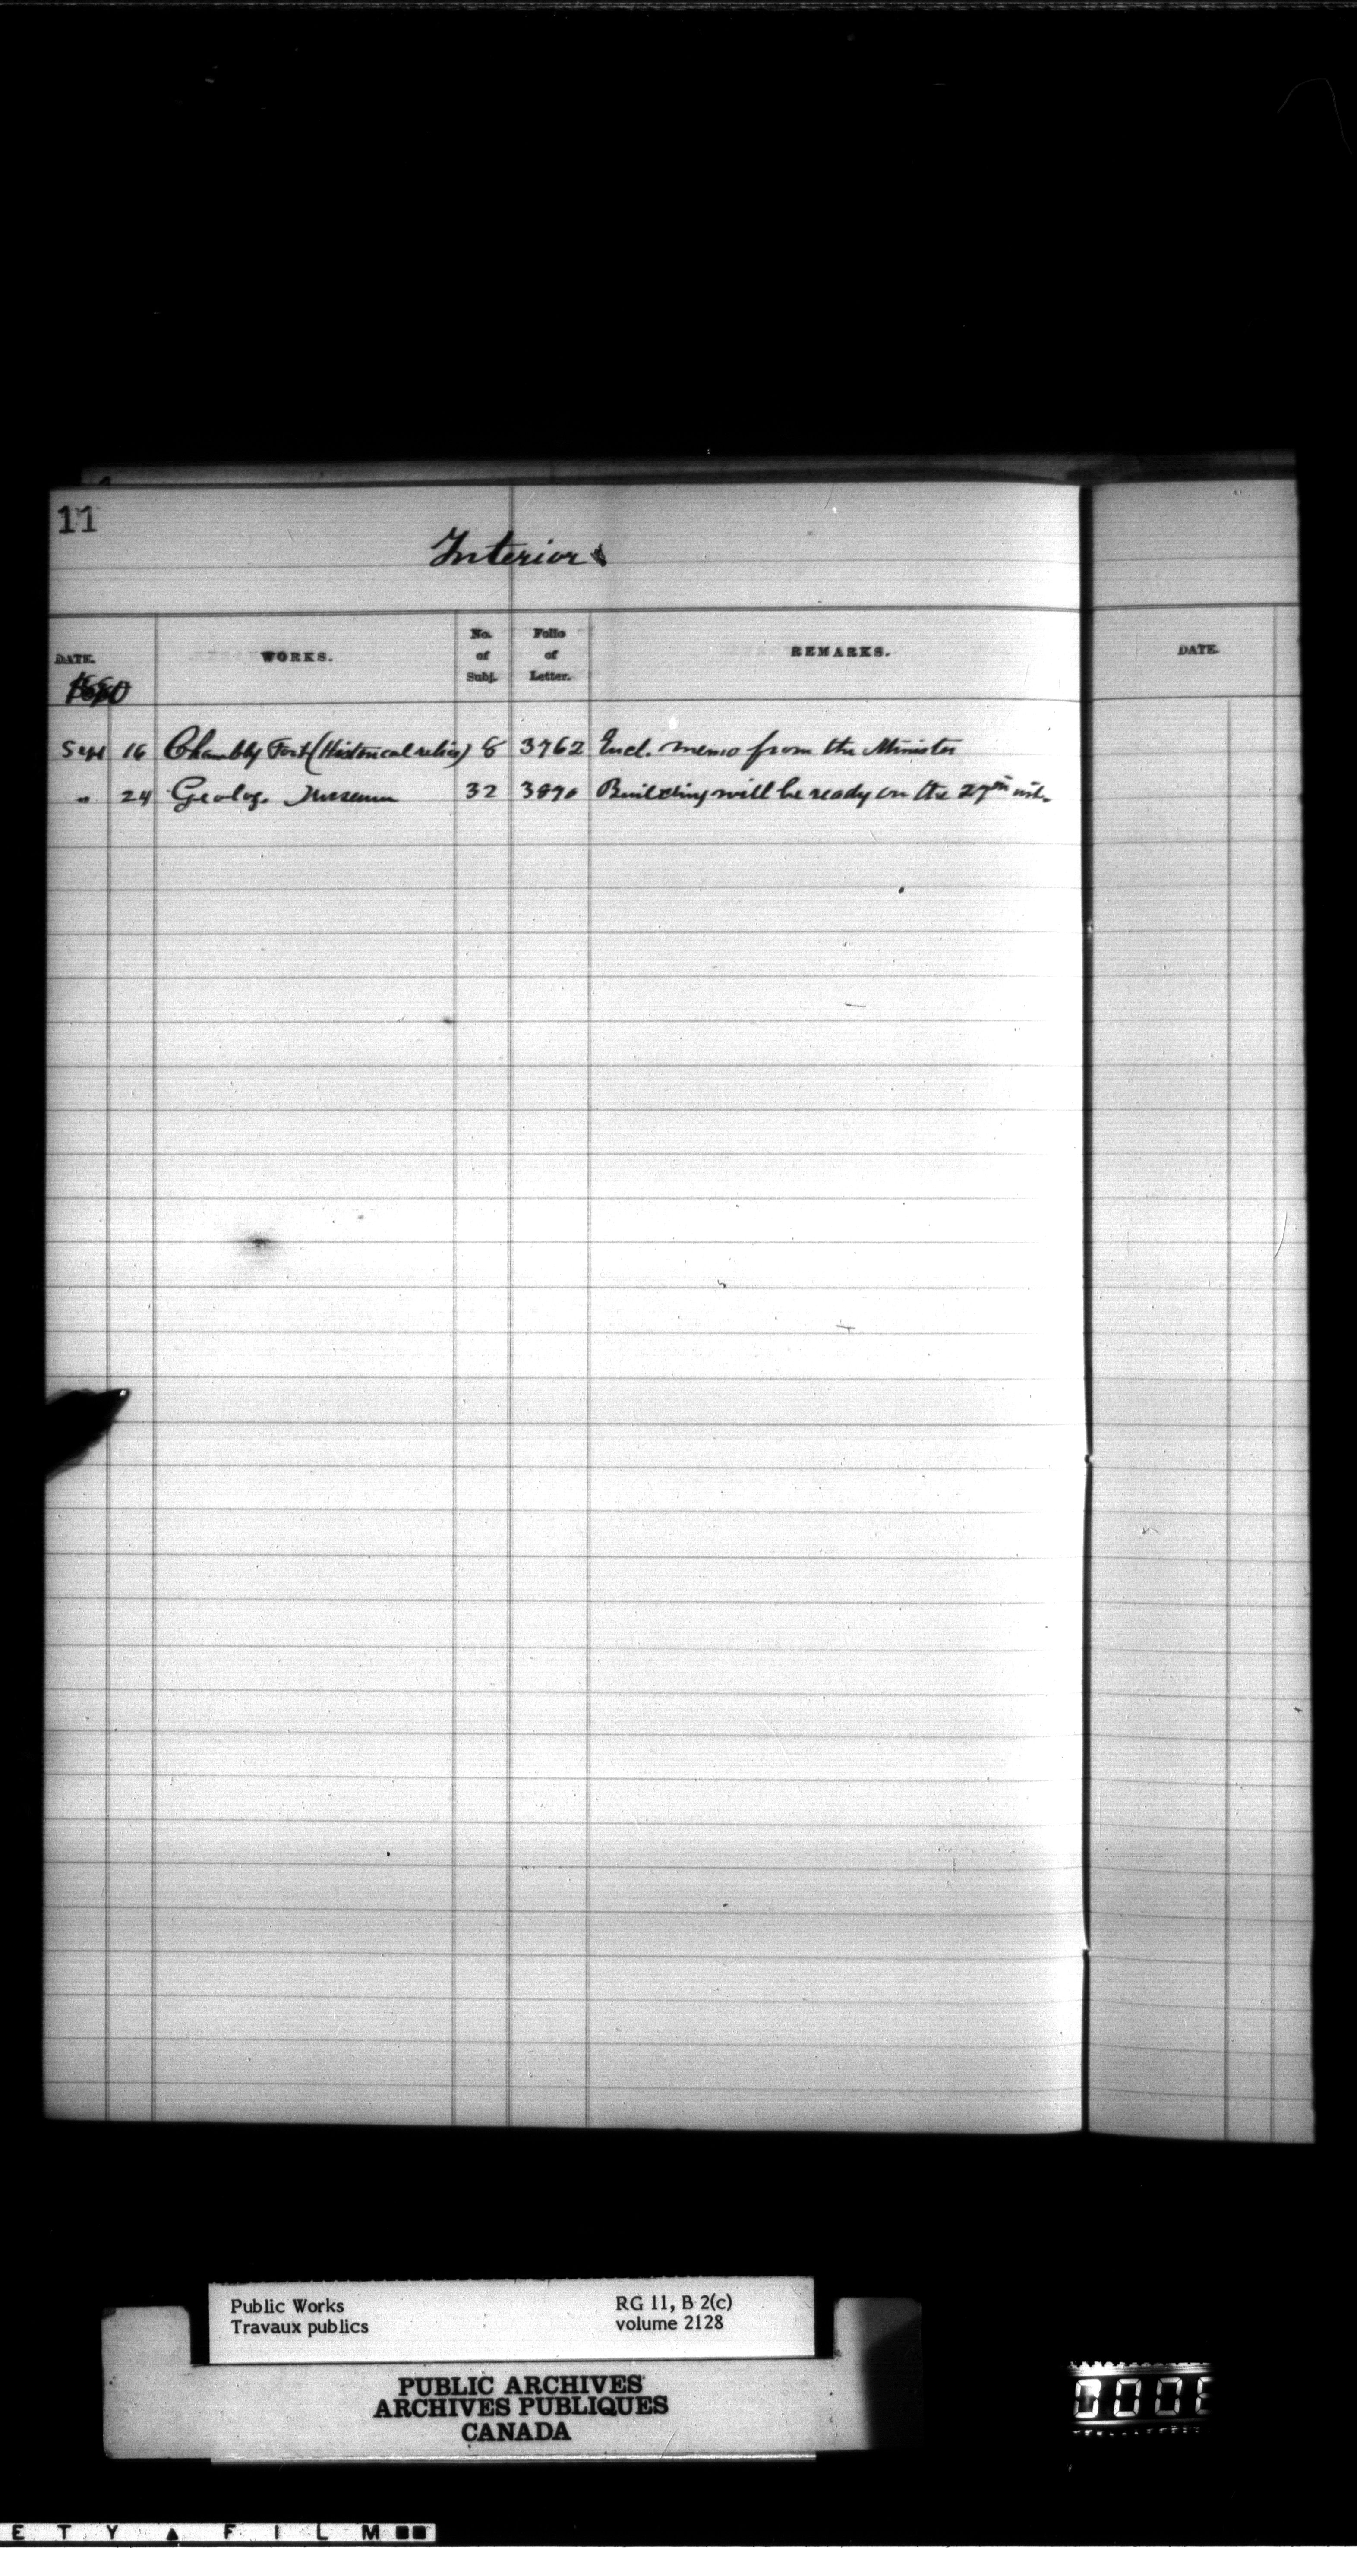 11
Interior
DATE. WORKS. No. of Subj. Folio of Letter. REMARKS. DATE.
1880
Sept 16 Chambly Fort (Historical relics) 8 3762 Encl. memo from the Minister
" 24 Geolog. Museum 32 3890 Building will be ready on the 27th inst.
Public Works RG 11, B 2(c)
Travaux publics volume 2128
PUBLIC ARCHIVES
ARCHIVES PUBLIQUES
CANADA
E T Y ▲ F I L M